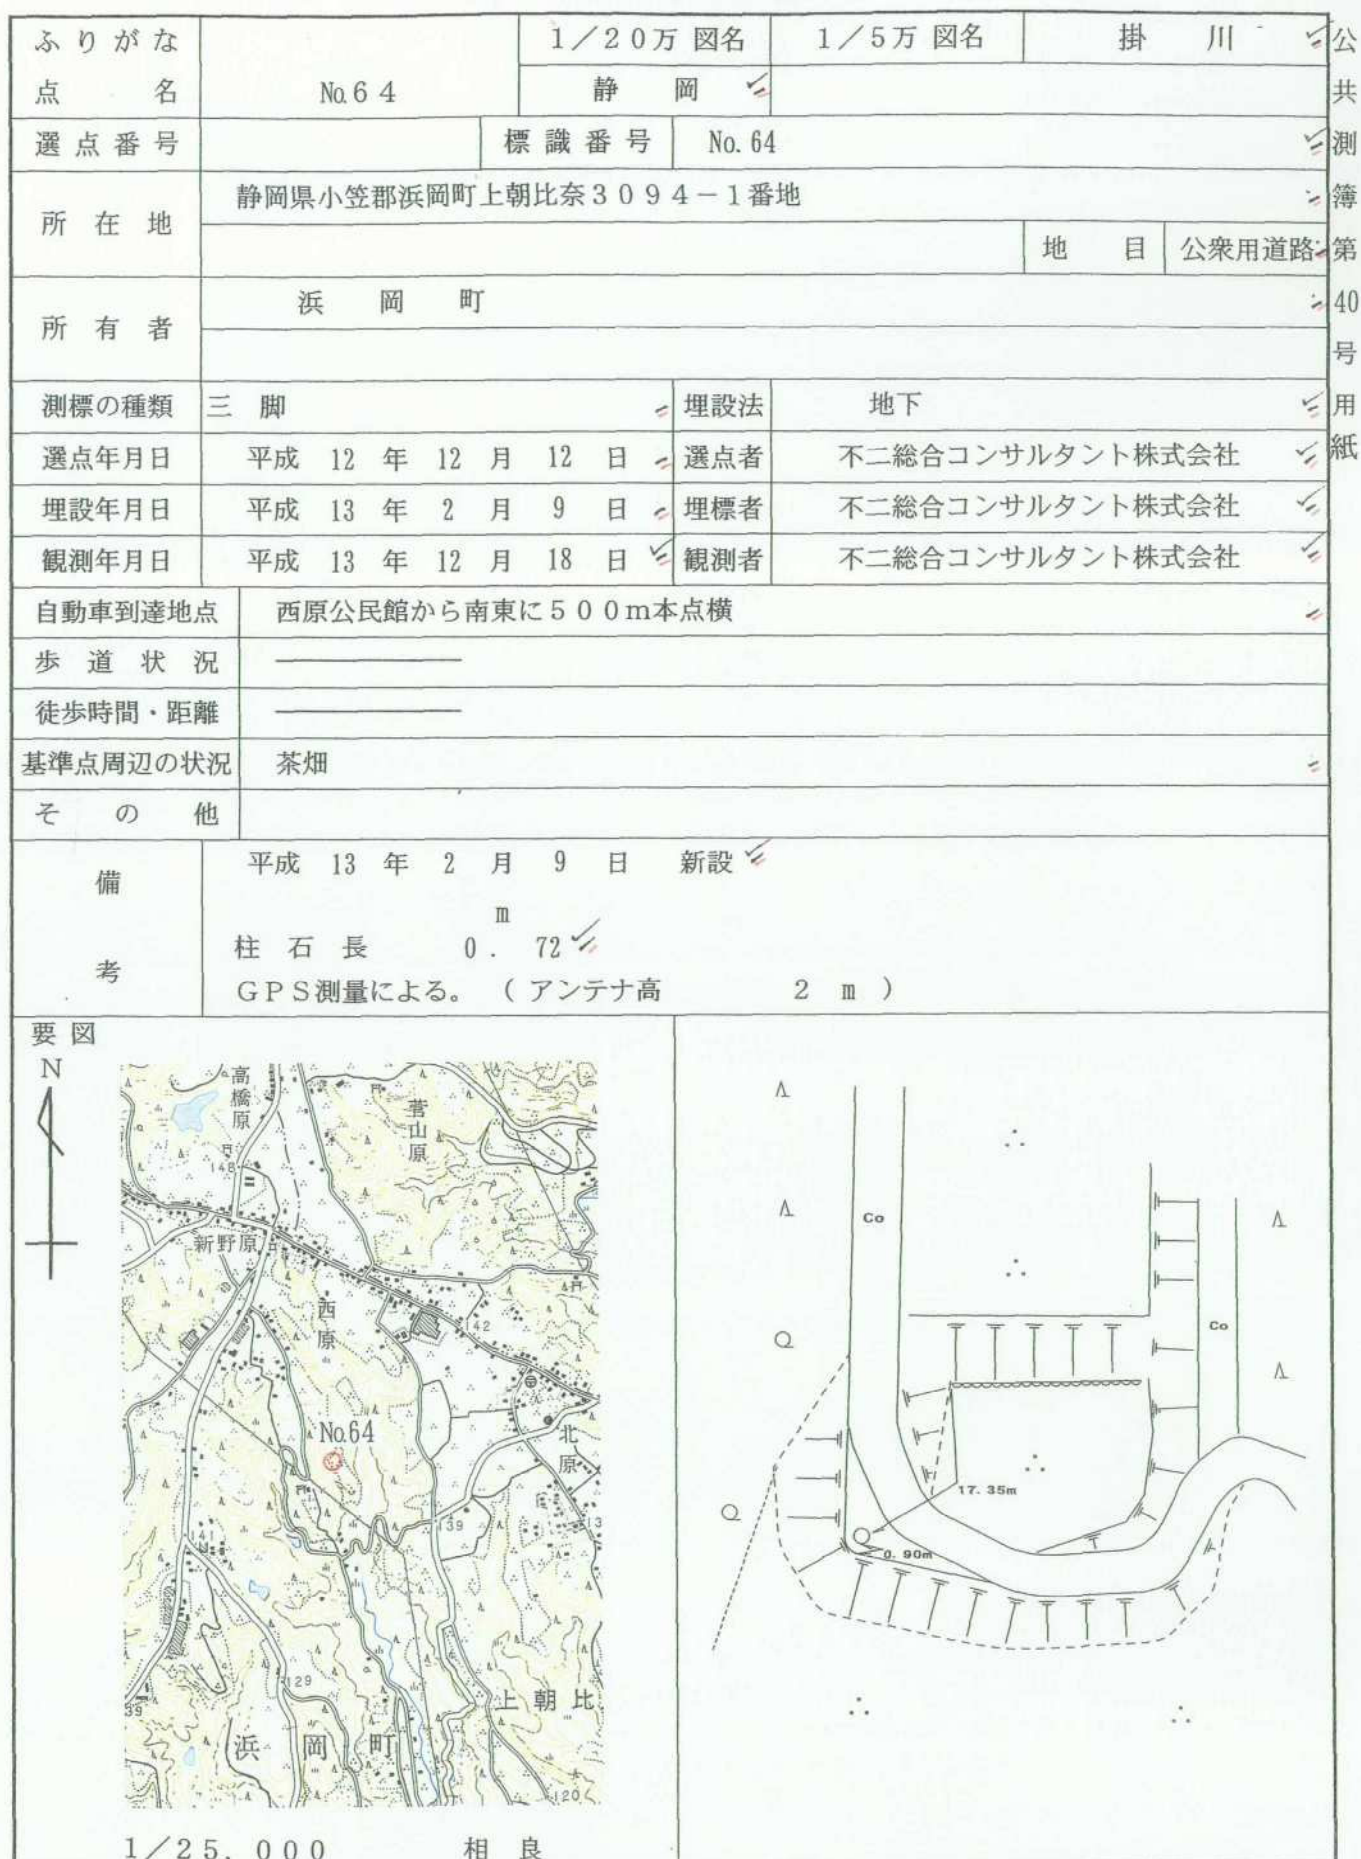 ふりがな
点名 No.64
1／20万 図名 1／5万 図名 掛川
静岡
選点番号 標識番号 No.64
所在地 静岡県小笠郡浜岡町上朝比奈3094－1番地
地目 公衆用道路
所有者 浜岡町
測標の種類 三脚 埋設法 地下
選点年月日 平成 12 年 12 月 12 日 選点者 不二総合コンサルタント株式会社
埋設年月日 平成 13 年 2 月 9 日 埋標者 不二総合コンサルタント株式会社
観測年月日 平成 13 年 12 月 18 日 観測者 不二総合コンサルタント株式会社
自動車到達地点 西原公民館から南東に500m本点横
歩道状況
徒歩時間・距離
基準点周辺の状況 茶畑
その他
備考 平成 13 年 2 月 9 日 新設
m
柱石長 0．72
GPS測量による。（アンテナ高 2 m ）
公共測簿第40号用紙
要図
N
高橋原
菅山原
148
新野原
西原
142
No.64
北原
139
13
141
129
39
上朝比
浜岡町
120
1／25，000 相良
Co
Co
17.35m
0.90m